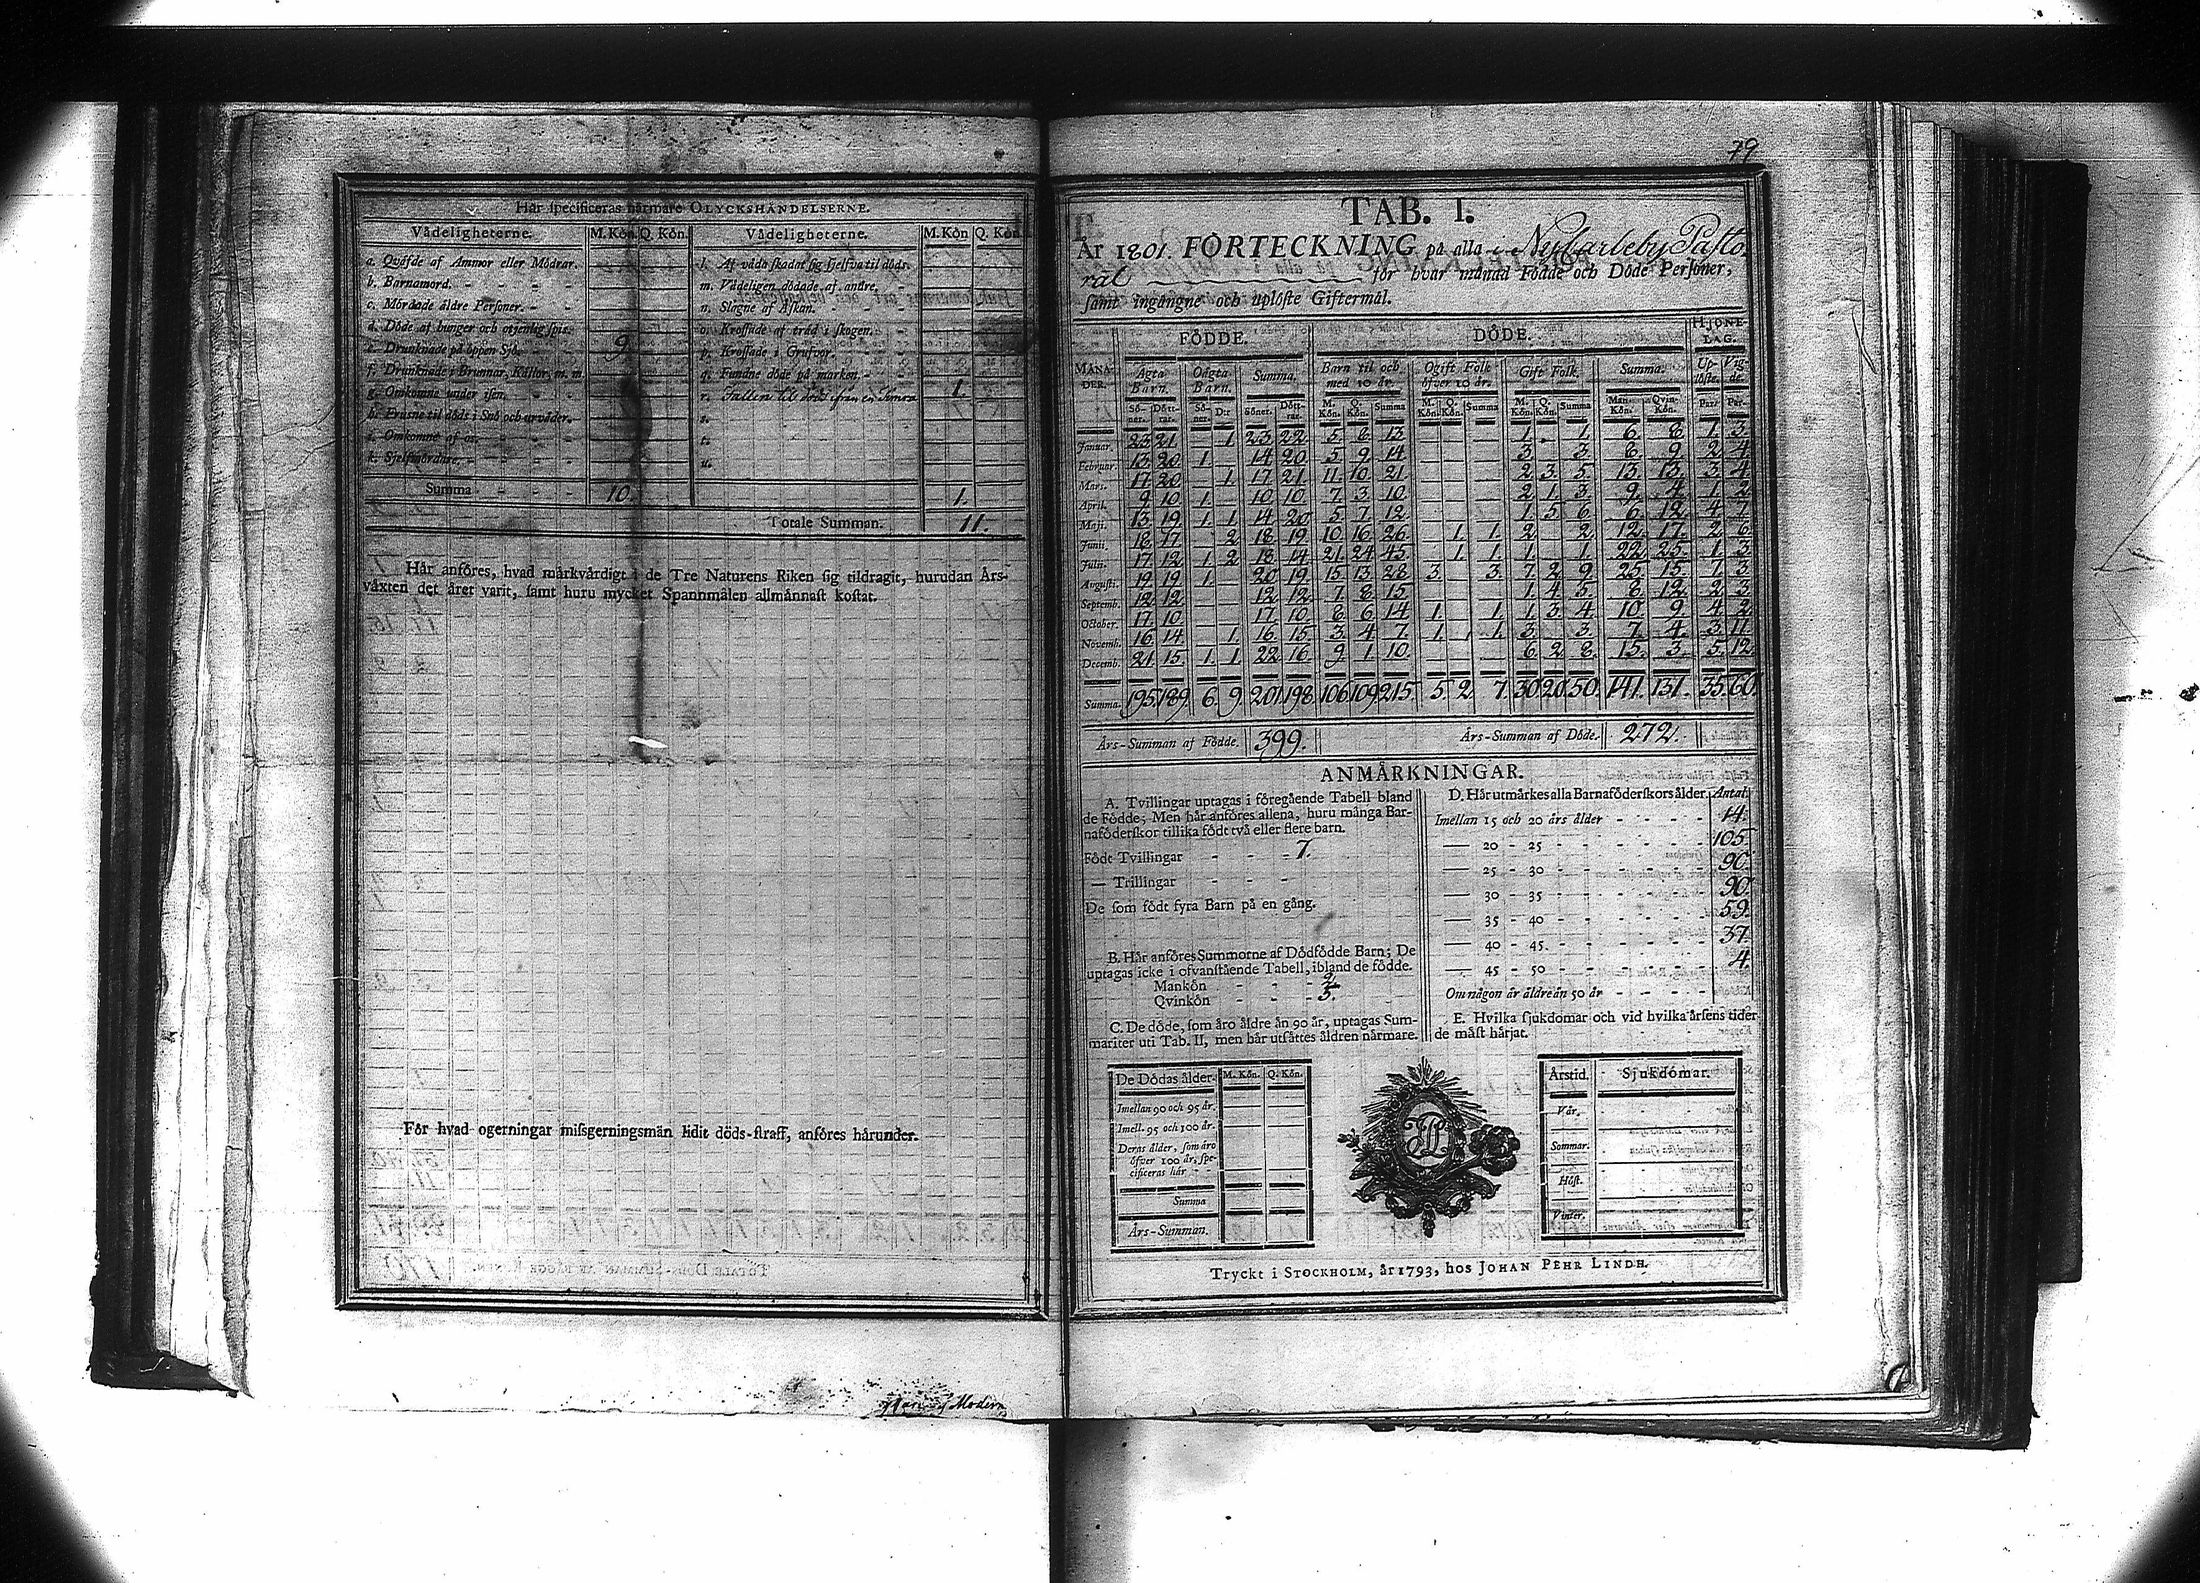 Här specificeras närmare OLYCKSHÄNDELSERNE.
Vådeligheterne. M. Kön. Q. Kön. Vådeligheterne. M. Kön Q. Kön.
a. Qväfde af Ammor eller Mödrar. l. Af våda skadat sig sjelfva til döds.
b. Barnamord. m. Vådeligen dödade af andre.
c. Mördade äldre Personer. n. Slagne af Åskan.
d. Döde af hunger och otjenlig spis. o. Krossade af träd i skogen.
e. Drunknade på öppen Sjö. 9. p. Krossade i Grufvor.
f. Drunknade i Brunnar, Källor, m. m. q. Fundne döde på marken.
g. Omkomne under isen. r. Fallen til död ifrån en 1.
h. Frusne til döds i Snö och urväder. s.
i. Omkomne af os. t.
k. Sjelfmördare. u.
Summa 10. 1.
Totale Summan. 11.
Här anföres, hvad märkvärdigt i de Tre Naturens Riken sig tildragit, hurudan Års-
växten det året varit, samt huru mycket Spannmålen allmännast kostat.
För hvad ogerningar missgerningsmän lidit döds-straff, anföres härunder.
79
TAB. I.
År 1801. FÖRTECKNING på alla i Nycarleby Pasto-
rat för hvar månad Födde och Döde Personer,
samt ingångne och uplöste Giftermål.
FÖDDE. DÖDE. HJONE-LAG.
MÅNA-DER. Ägta Barn. Oägta Barn. Summa. Barn til och med 10 år. Ogift Folk öfver 10 år. Gift Folk. Summa. Up-löste. Vig-de.
Sö-ner. Dött-rar. Sö-ner D:r Söner. Dött-rar. M. Kön. Q. Kön. Summa M. Kön. Q. Kön. Summa M. Kön. Q. Kön. Summa Man-Kön. Qvin-Kön. Par. Par.
Januar. 23 21 1 23 22 5. 8. 13 1. 1. 6. 8. 1. 3.
Februar. 13 20 1. 14 20 5 9. 14 3. 3. 8. 9. 2 4
Mars. 17 20 1. 17 21 11. 10 21. 2 3. 5. 13 13. 3. 4
April. 9 10 1. 10 10 7. 3. 10. 2. 1. 3. 9. 4. 1. 2
Maji. 13. 19. 1. 1. 14 20 5 7 12 1. 5 6 6. 12. 4.
Junii. 18 17 2 18 19 10 16 26 1 1. 2 2 12. 17. 2 6
Julii. 17 12 1. 2 18 14 21. 24 45. 1 1. 1. 1. 22 25. 1. 3.
Augusti. 19 19 1. 20 19. 15. 13. 28 3. 3. 7. 2 9. 25 15. 1. 3.
Septemb. 12 12 12 12 7. 8. 15. 1. 4. 5. 8. 12. 2 3.
October. 17 10 17. 10 8 6 14 1. 1. 1. 3 4. 10 9 4. 2.
Novemb. 16 14 1. 16 15 3. 4 7. 1. 1. 3. 3. 7. 4. 3. 11.
Decemb. 21 15. 1. 1. 22 16 9. 1. 10. 6. 2 8. 15. 3. 5. 12.
Summa. 195. 189. 6. 9. 201. 198. 106. 109. 215. 5 2. 7. 30. 20. 50. 141. 131. 35. 60.
Års-Summan af Födde. 399. Års-Summan af Döde. 272.
ANMÄRKNINGAR.
A. Tvillingar uptagas i föregående Tabell bland
de Födde; Men här anföres allena, huru många Bar-
naföderskor tillika födt två eller flere barn.
Födt Tvillingar 7.
— Trillingar
De som födt fyra Barn på en gång.
B. Här anföres Summorne af Dödfödde Barn; De
uptagas icke i ofvanstående Tabell, ibland de födde.
Mankön
Qvinkön 5.
C. De döde, som äro äldre än 90 år, uptagas Sum-
mariter uti Tab. II, men här utsättes åldren närmare.
D. Här utmärkes alla Barnaföderskors ålder. Antal.
Imellan 15 och 20 års ålder 14.
— 20 - 25 105.
— 25 - 30 90.
— 30 - 35 90.
— 35 - 40 59.
— 40 - 45. 37.
— 45 - 50 4.
Om någon är äldre än 50 år
E. Hvilka sjukdomar och vid hvilka årsens tider
de mäst härjat.
De Dödas ålder. M. Kön. Q. Kön.
Imellan 90 och 95 år.
Imell. 95 och 100 år.
Deras ålder, som äro
öfver 100 år, spe-
cificeras här
Summa
Års-Summan.
Årstid. Sjukdomar.
Vår.
Sommar.
Höst.
Vinter.
Tryckt i STOCKHOLM, år 1793, hos JOHAN PEHR LINDH.